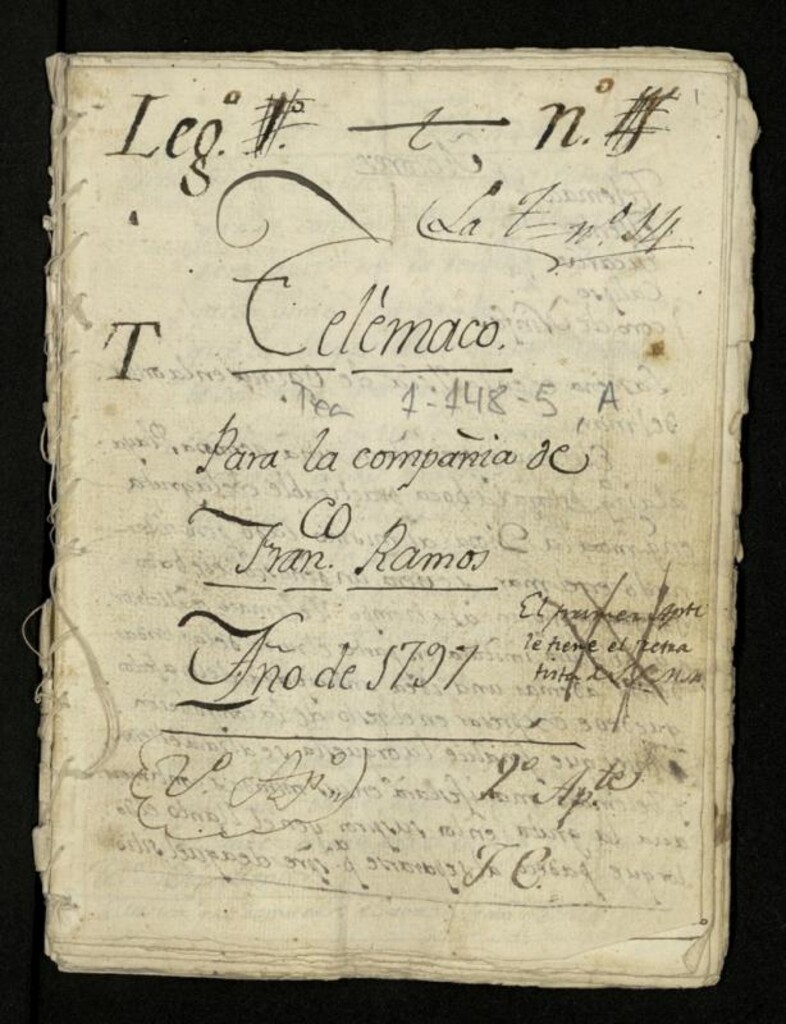 Leg.º 1.º — t — n.º
1
La T n.º 14
Telémaco.
T
Tea 1-148-5 A
Para la compañia de
Fran.CO Ramos
Año de 1797
El primer Apte
le tiene el retra
tista
2º Ap.te
J. C.